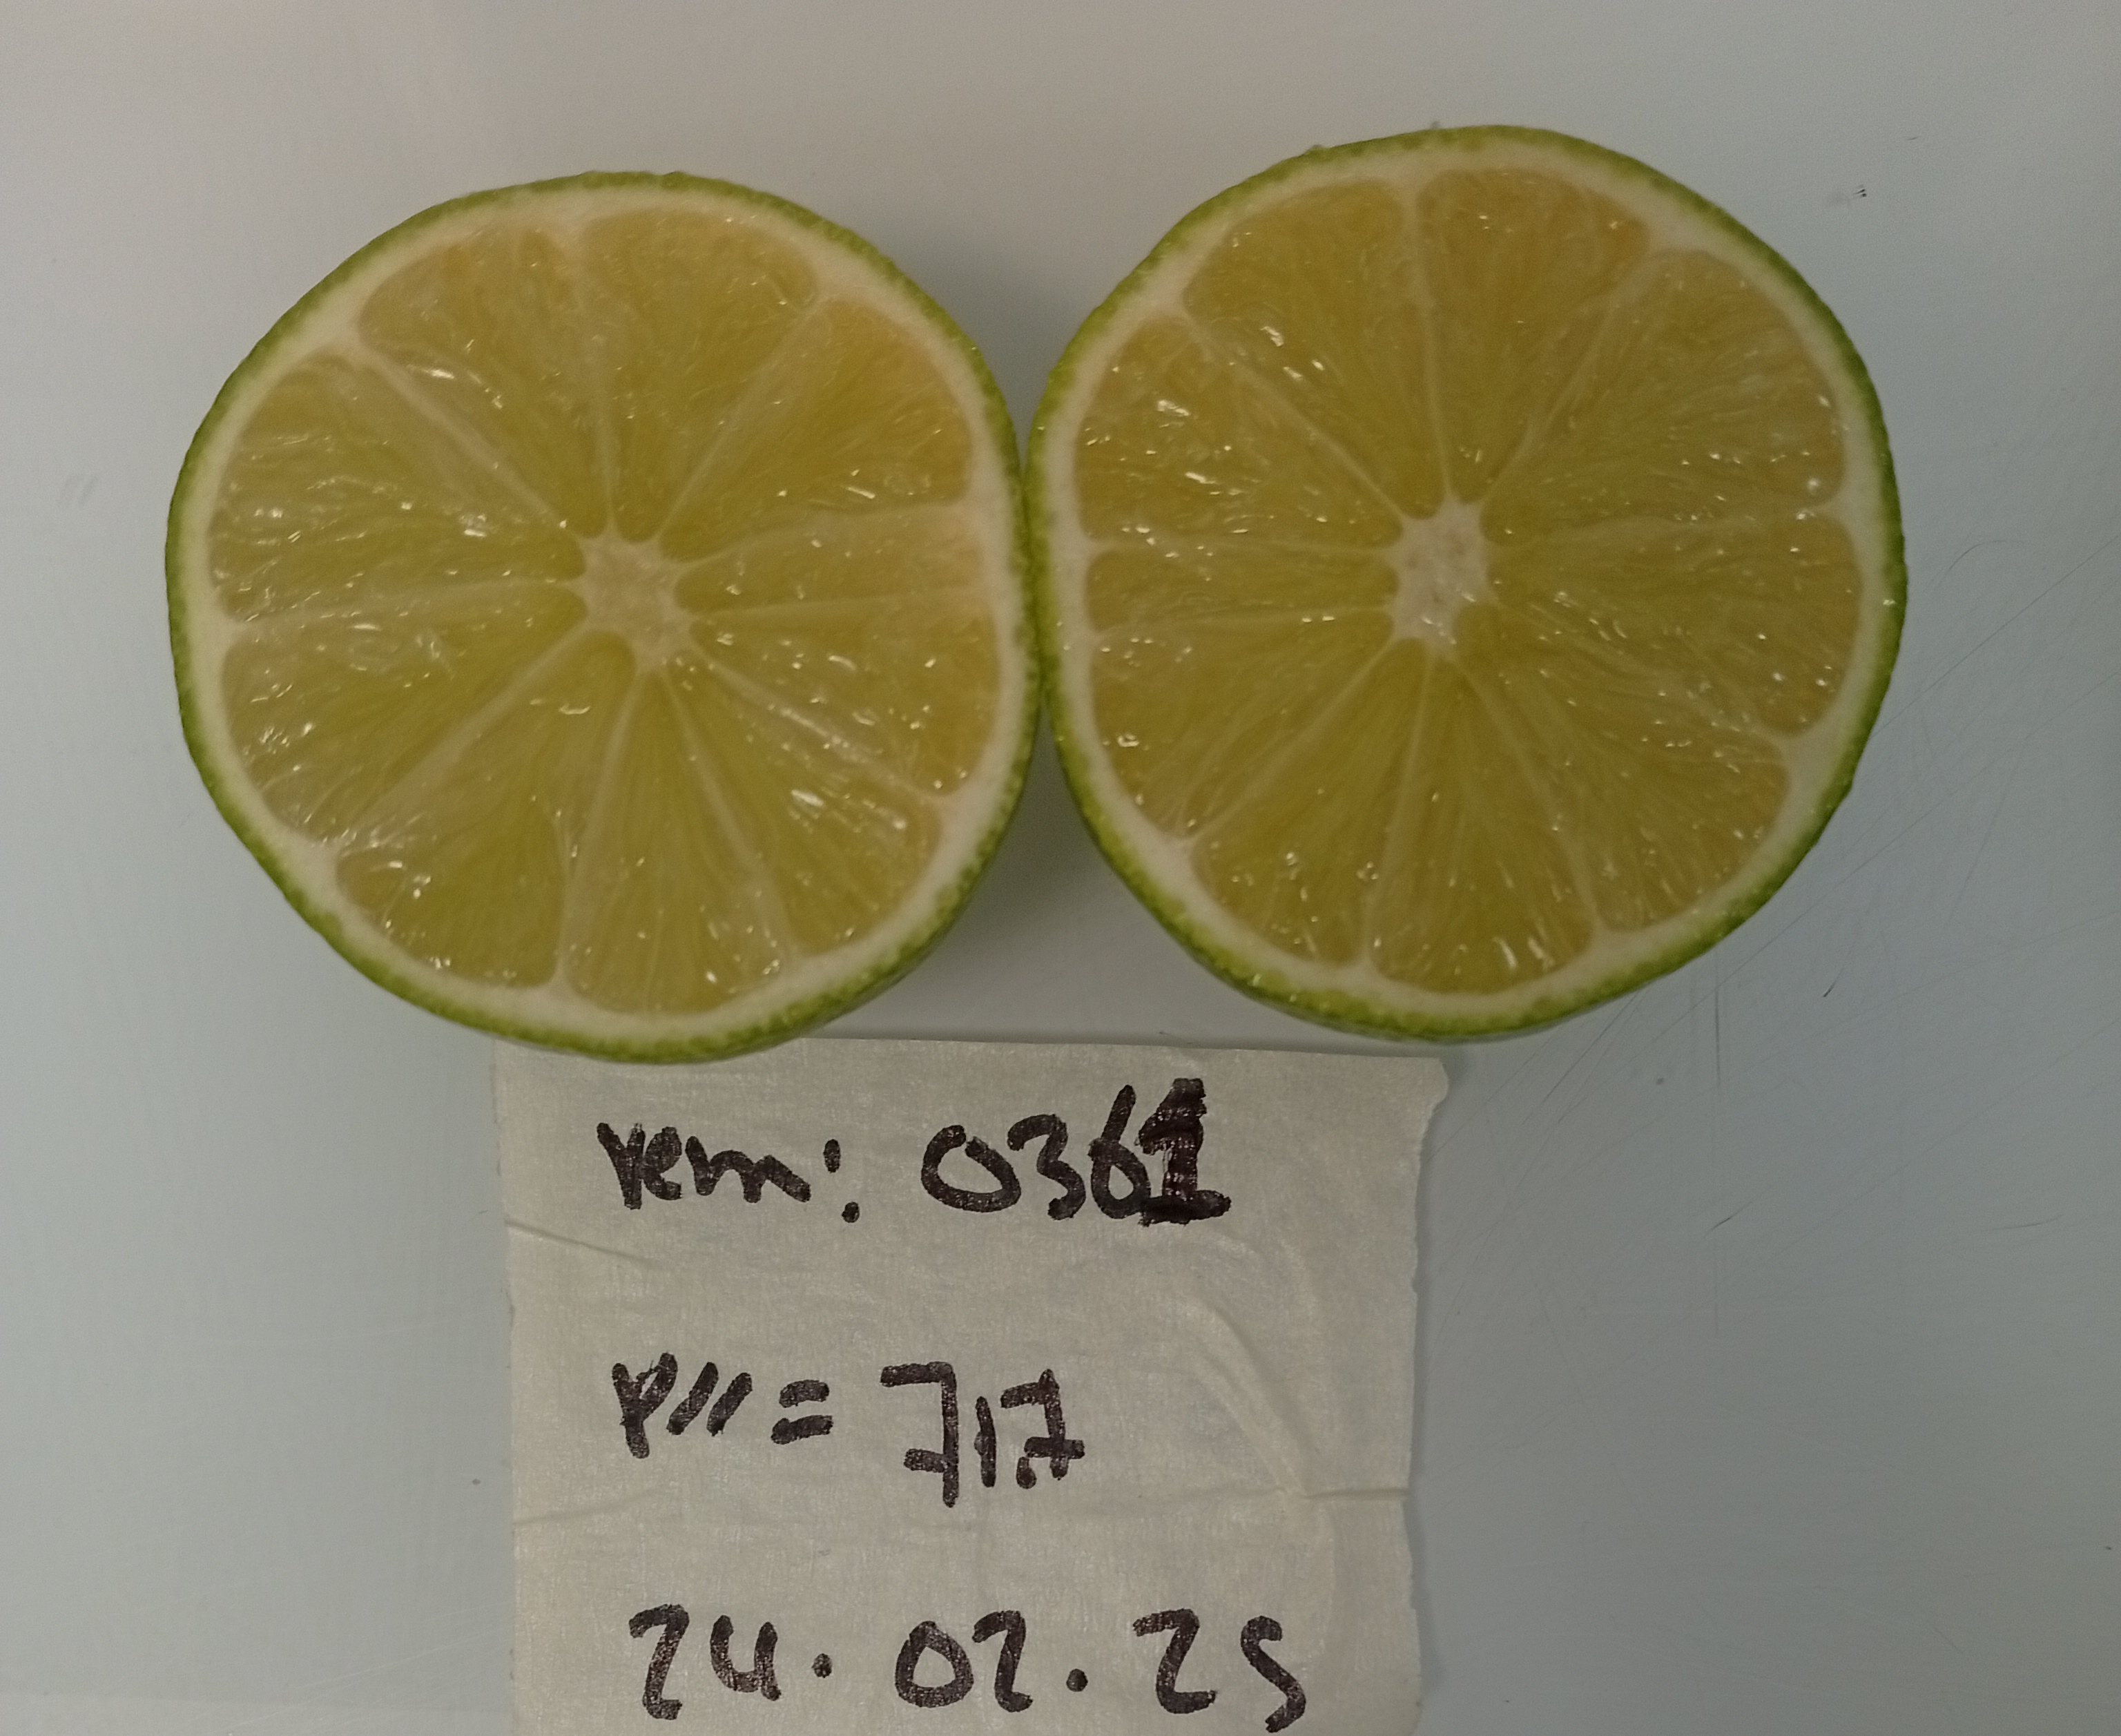 rem: 0361
P11 = 71.7
24. 02. 25